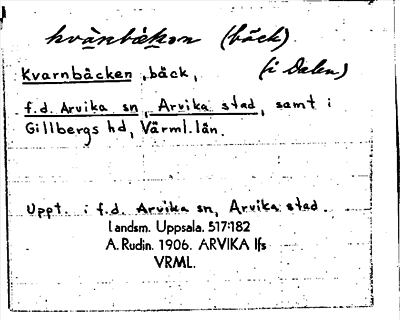 kvànbèkon (bäck)
Kvarnbäcken, bäck, (i Dalen)
f.d. Arvika sn, Arvika stad, samt i
Gillbergs hd, Värml.län.
Uppt. i f.d. Arvika sn, Arvika stad.
Landsm. Uppsala. 517:182
A. Rudin. 1906. ARVIKA lfs
VRML.